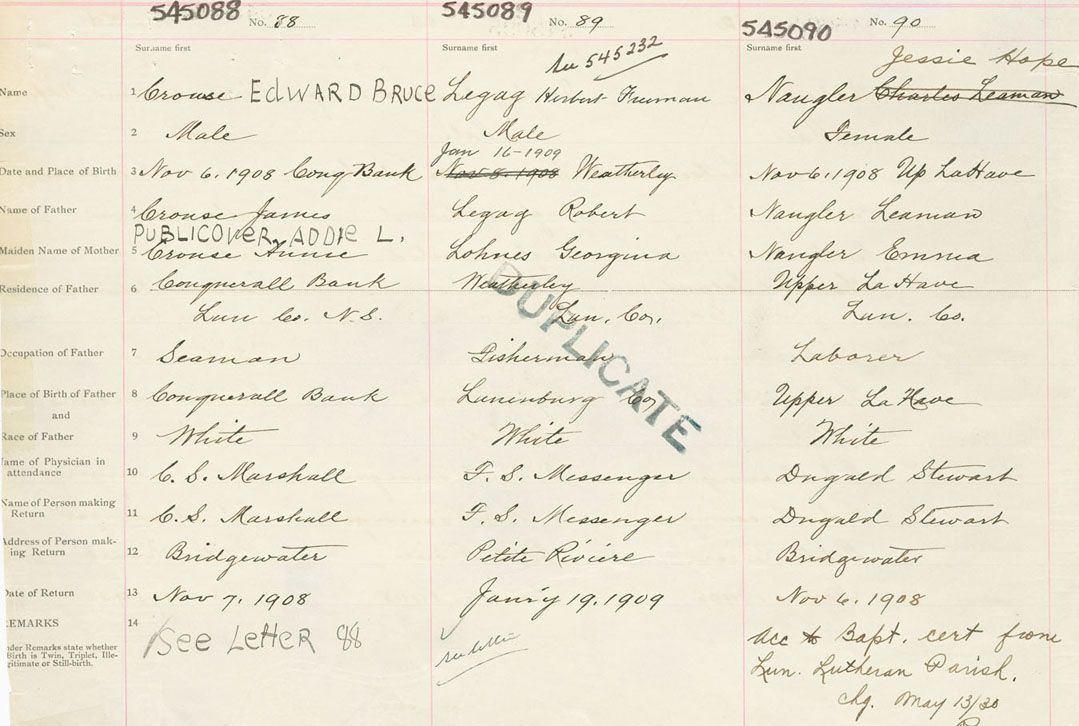 545088 No. 88
545089 No. 89
545090 No. 90
Surname first
Surname first
Surname first
See 545232
Jessie Hope
Name 1 Crouse EdWARD BRUCE
Legag Herbert Freeman
Naugler Charles Leaman
Sex 2 Male
Male
Female
Jan 16-1909
Date and Place of Birth 3 Nov 6, 1908 Conq Bank
Nov 8, 1908 Weatherley
Nov 6, 1908 Up LaHave
Name of Father 4 Crouse James
Legag Robert
Naugler Leaman
PUBLICOVER, ADDIE L.
Maiden Name of Mother 5 Crouse Annie
Lohnes Georgina
Naugler Emma
Residence of Father 6 Conquerall Bank
Weatherley
Upper LaHave
Lun Co. N.S.
Lun. Co.
Lun. Co.
DUPLICATE
Occupation of Father 7 Seaman
Fisherman
Laborer
Place of Birth of Father 8 Conquerall Bank
Lunenburg Co
Upper LaHave
and
Race of Father 9 White
White
White
Name of Physician in
attendance 10 C. S. Marshall
F. S. Messenger
Dugald Stewart
Name of Person making
Return 11 C. S. Marshall
F. S. Messenger
Dugald Stewart
Address of Person mak-
ing Return 12 Bridgewater
Petite Rivière
Bridgewater
Date of Return 13 Nov 7, 1908
Jan'ry 19, 1909
Nov 6, 1908
REMARKS 14
Under Remarks state whether
Birth is Twin, Triplet, Ille-
gitimate or Still-birth.
See Letter 88
see letter
Acc to Bapt. cert from
Lun. Lutheran Parish.
chg. May 13/30